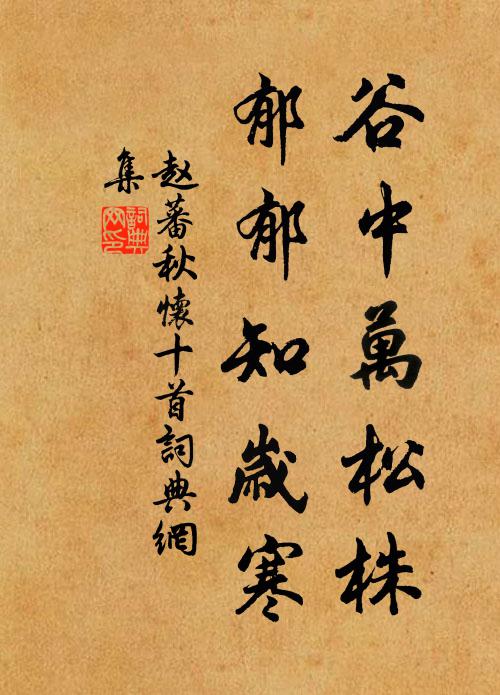 谷中萬松株
郁郁知歲寒
赵蕃秋懷十首詞典網
集
詞典
网印